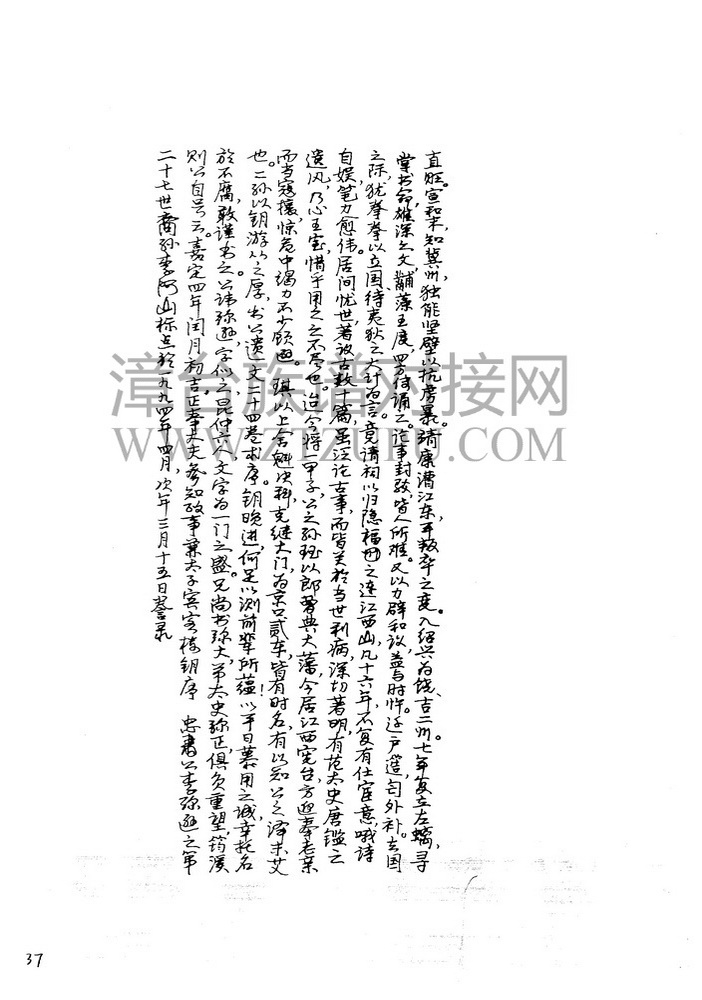 直旺。宣和末，知冀州，独能坚壁以抗虏暴。靖康漕江东，平叛卒之变。入绍兴为饶、吉二州，七年复立左螭，寻
掌书命，雄深之文，黼藻王度，四方传诵之。论事封驳，皆人所难。又以力辟和议，益与时忤。迁户遂匄外补。去国
之际，犹拳拳以立国、待夷狄之大计为言，竟请祠以归隐福州之连江西山，凡十六年，不复有仕宦意，哦诗
自娱，笔力愈伟。居间忧世，著议古数十篇，虽泛论古事，而皆关于当世利病，深切著明，有范太史唐鉴之
遗风，乃心王室，惜乎用之之不尽也。迨今将一甲子，公之孙珏以郎曹典大藩，今居江西宪台，方迎奉老亲
而当寇攘惊危中，竭力不少顾避。琪以上舍魁决科，克继大门，为京口贰车，皆有时名，有以知公之泽未艾
也。二孙以钥游从之厚，出公遗文二十四卷求序，钥晚进，何足以测前辈所蕴！以平日慕用之诚，幸托名
於不腐，敢谨书之。公讳弥逊，字似之，昆仲六人，文字为一门之盛。兄尚书弥大，弟太史弥正，俱负重望，筠溪
则公自号云。嘉定四年闰月初吉，正奉大夫、参知政事兼太子宾客楼钥序 忠肃公李弥逊之第
二十七世裔孙李阿山标点於一九九四年四月，次年三月十五日誊录
37
漳台族谱对接网
WWW.ZTZUPU.COM